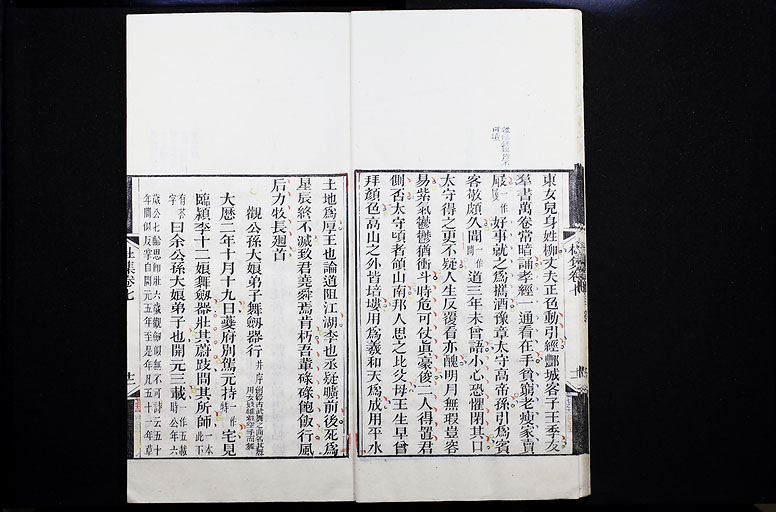 東女兒身姓柳丈夫正色動引經酆城客子王季友
羣書萬卷常暗誦孝經一通看在手貧窮老瘦家賣
好事就之爲攜酒豫章太守高帝孫引爲賓
客敬頗久聞道三年未曾語小心恐懼閉其口
太守得之更不疑人生反覆看亦醜明月無瑕豈容
易紫氣鬱鬱猶衝斗時危可仗眞豪俊二人得置君
側否太守頃者領山南邦人思之比父母王生早曾
拜顏色高山之外皆培塿用爲羲和天爲成用平水
土地爲厚王也論道阻江湖李也丞疑曠前後死爲
星辰終不滅致君堯舜焉肯朽吾輩碌碌飽飯行風
后力牧長迴首
觀公孫大娘弟子舞劔器行 并序
大曆二年十月十九日夔府別駕元持 宅見
臨潁李十二娘舞劔器壯其蔚跂問其所師
曰余公孫大娘弟子也開元三載
杜集卷七